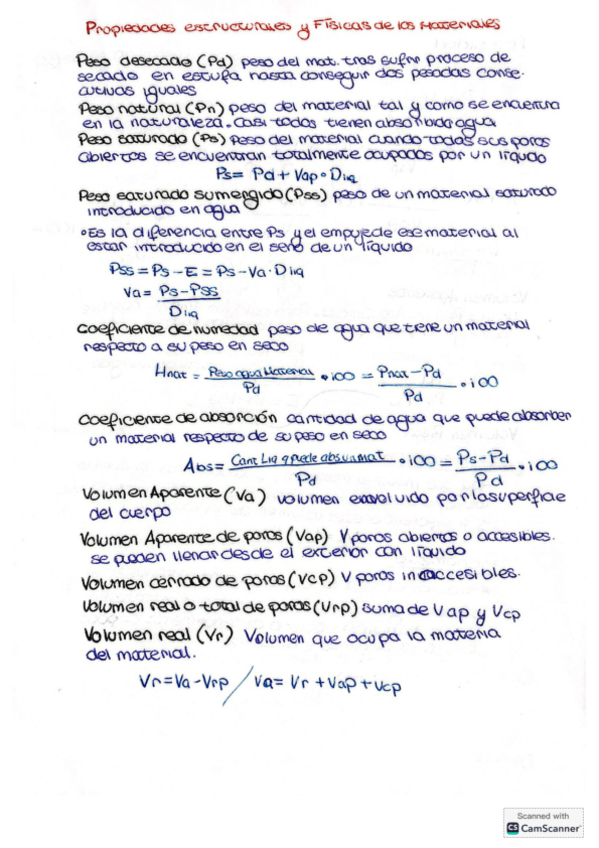 Propiedades estructurales y Físicas de los Materiales
Peso desecado (Pd) peso del mat. tras sufrir proceso de
secado en estufa hasta conseguir dos pesadas conse-
cutivas iguales
Peso natural (Pn) peso del material tal y como se encuentra
en la naturaleza. Casi todos tienen absorbida agua
Peso saturado (Ps) peso del material cuando todos sus poros
abiertos se encuentran totalmente ocupados por un líquido
Ps = Pd + Vap · Dliq
Peso saturado sumergido (Pss) peso de un material saturado
introducido en agua
· Es la diferencia entre Ps y el empuje de ese material al
estar introducido en el seno de un líquido
Pss = Ps - E = Ps - Va · Dliq
Va = Ps - Pss / Dliq
Coeficiente de humedad peso de agua que tiene un material
respecto a su peso en seco
Hnat = Peso agua Material / Pd · 100 = Pnat - Pd / Pd · 100
Coeficiente de absorción cantidad de agua que puede absorber
un material respecto de su peso en seco
Abs = Cant Liq q puede abs un mat / Pd · 100 = Ps - Pd / Pd · 100
Volumen Aparente (Va) volumen envolvido por la superficie
del cuerpo
Volumen Aparente de poros (Vap) V poros abiertos o accesibles.
se pueden llenar desde el exterior con líquido
Volumen cerrado de poros (Vcp) V poros inaccesibles.
Volumen real o total de poros (Vrp) suma de Vap y Vcp
Volumen real (Vr) Volumen que ocupa la materia
del material.
Vr = Va - Vrp / Va = Vr + Vap + Vcp
Scanned with
CS CamScanner